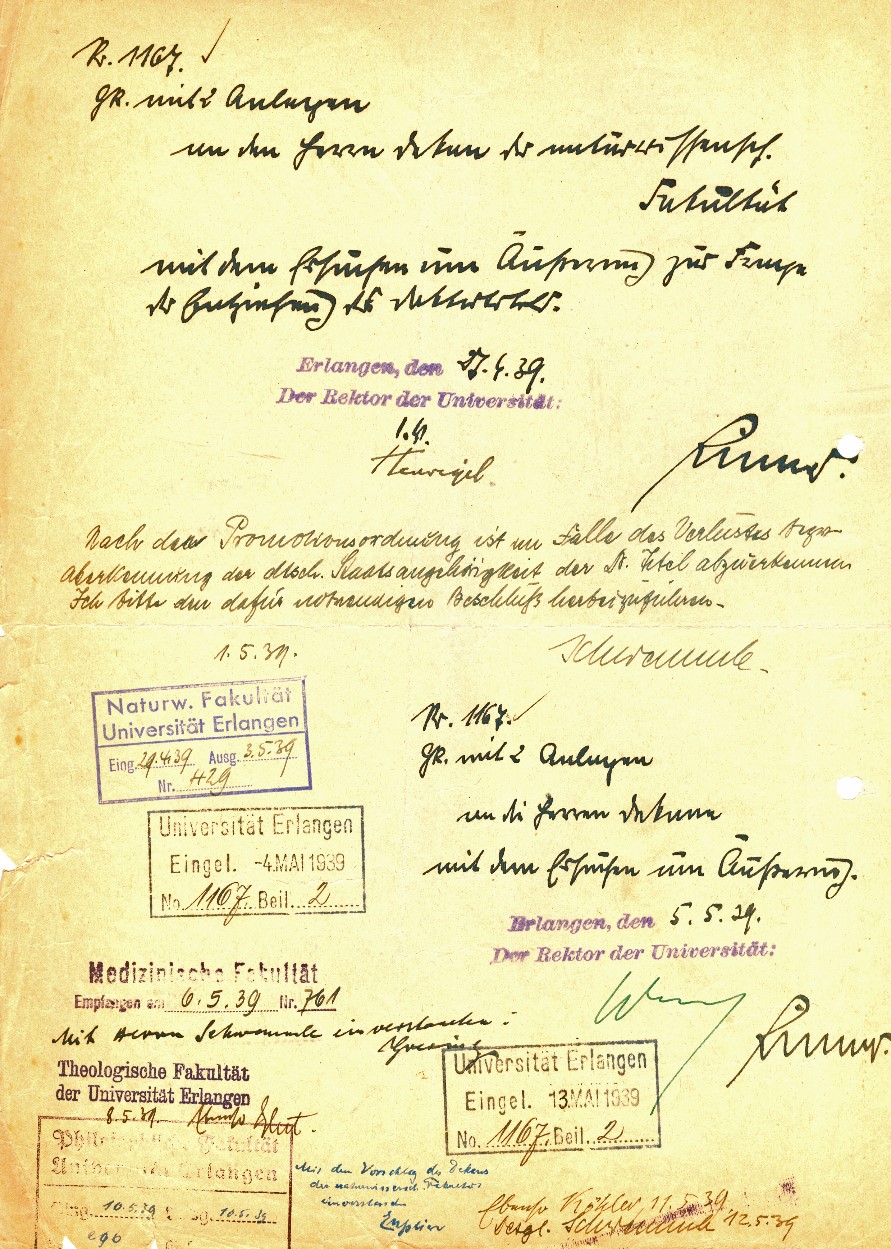 Nr. 1167.
gR. mit 2 Anlagen
an den Herrn Dekan der naturwissensch.
Fakultät
mit dem Ersuchen um Äußerung zur Frage
der Entziehung des Doktortitels.
Erlangen, den 27.4.39.
Der Rektor der Universität:
I.V.
Nach der Promotionsordnung ist im Falle des Verlustes bezw.
Aberkennung der dtsch. Staatsangehörigkeit der Dr. Titel abzuerkennen
Ich bitte den dafür notwendigen Beschluß herbeizuführen.
1.5.39.
Schwemmle
Naturw. Fakultät
Universität Erlangen
Eing. 29.4.39 Ausg. 3.5.39
Nr. 429
Nr. 1167.
gR. mit 2 Anlagen
an die Herren Dekane
mit dem Ersuchen um Äußerung.
Universität Erlangen
Eingel. -4. MAI 1939
No. 1167 Beil. 2
Erlangen, den 5.5.39.
Der Rektor der Universität:
Medizinische Fakultät
Empfangen am 6.5.39 Nr. 761
Mit Herrn Schwemmle einverstanden:
Theologische Fakultät
der Universität Erlangen
8.5.39
Universität Erlangen
Eingel. 13. MAI 1939
No. 1167. Beil. 2
Philosophische Fakultät
Universität Erlangen
Eing. 10.5.39 Ausg. 10.5.39
Mit dem Vorschlag des Dekans
der naturwissensch. Fakultät
einverstanden
Ebenso Köhler 11.5.39
Desgl. Schwemmle 12.5.39